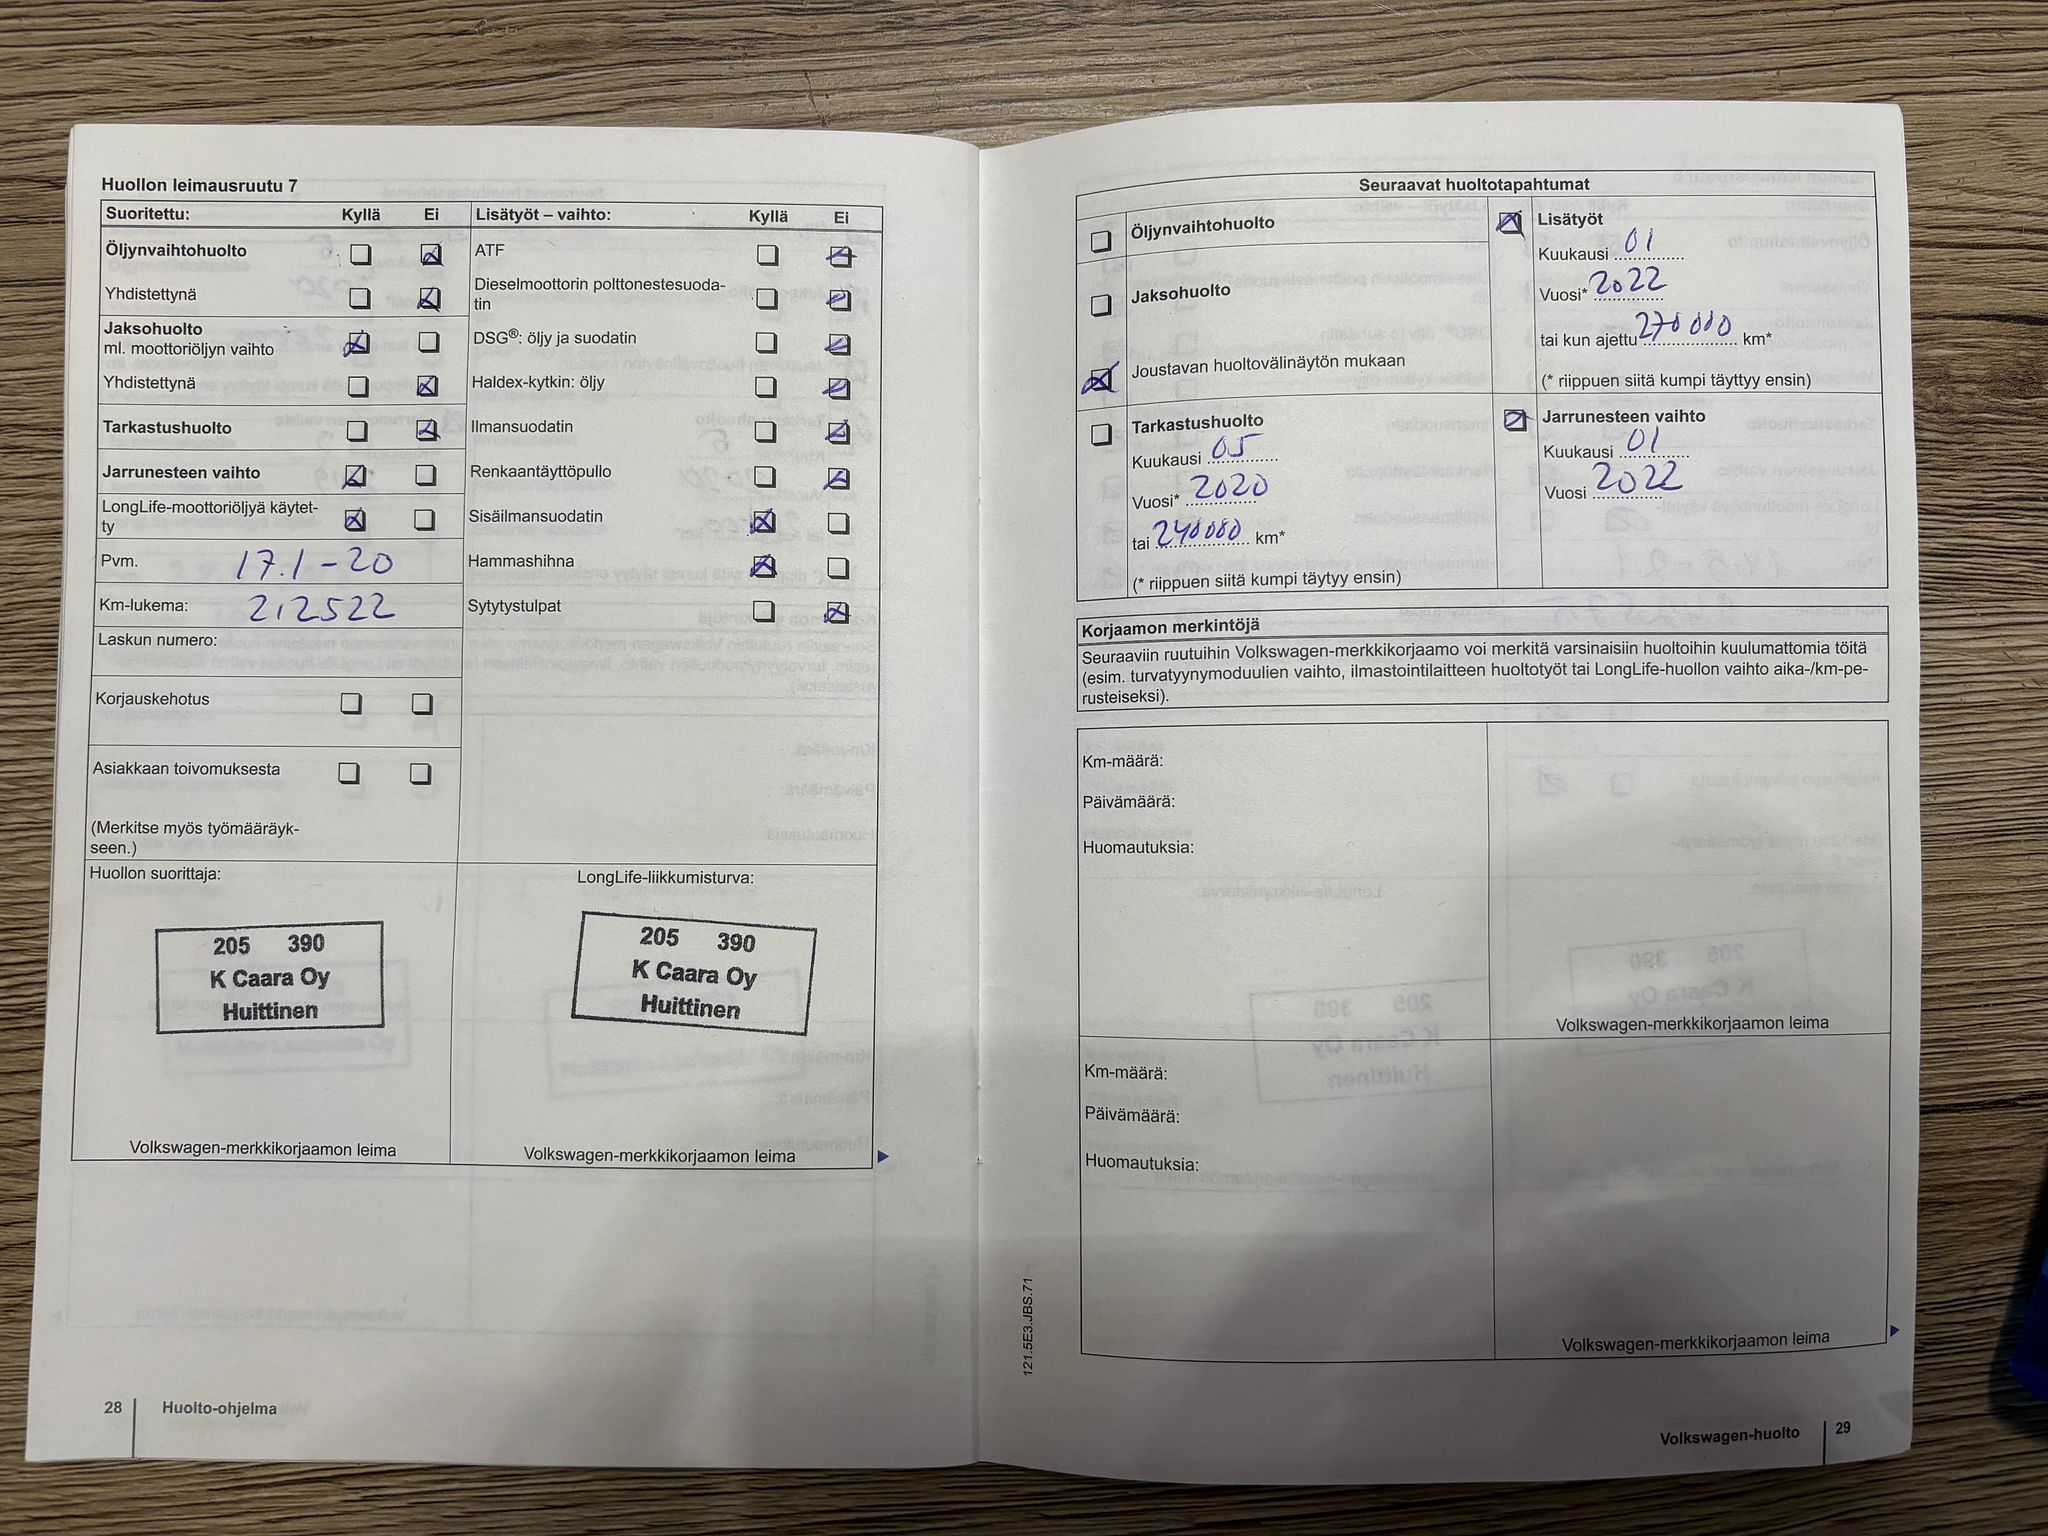 Huollon leimausruutu 7
Suoritettu: Kyllä Ei Lisätyöt – vaihto: Kyllä Ei
Öljynvaihtohuolto
Yhdistettynä
Jaksohuolto
ml. moottoriöljyn vaihto
Yhdistettynä
Tarkastushuolto
Jarrunesteen vaihto
LongLife-moottoriöljyä käytet-
ty
Pvm. 17.1-20
Km-lukema: 212522
Laskun numero:
Korjauskehotus
Asiakkaan toivomuksesta
(Merkitse myös työmääräyk-
seen.)
ATF
Dieselmoottorin polttonestesuoda-
tin
DSG®: öljy ja suodatin
Haldex-kytkin: öljy
Ilmansuodatin
Renkaantäyttöpullo
Sisäilmansuodatin
Hammashihna
Sytytystulpat
Huollon suorittaja:
205 390
K Caara Oy
Huittinen
Volkswagen-merkkikorjaamon leima
LongLife-liikkumisturva:
205 390
K Caara Oy
Huittinen
Volkswagen-merkkikorjaamon leima
28 Huolto-ohjelma
Seuraavat huoltotapahtumat
Öljynvaihtohuolto
Jaksohuolto
Joustavan huoltovälinäytön mukaan
Lisätyöt
Kuukausi 01
Vuosi* 2022
tai kun ajettu 270000 km*
(* riippuen siitä kumpi täyttyy ensin)
Tarkastushuolto
Kuukausi 05
Vuosi* 2020
tai 240000 km*
(* riippuen siitä kumpi täytyy ensin)
Jarrunesteen vaihto
Kuukausi 01
Vuosi 2022
Korjaamon merkintöjä
Seuraaviin ruutuihin Volkswagen-merkkikorjaamo voi merkitä varsinaisiin huoltoihin kuulumattomia töitä
(esim. turvatyynymoduulien vaihto, ilmastointilaitteen huoltotyöt tai LongLife-huollon vaihto aika-/km-pe-
rusteiseksi).
Km-määrä:
Päivämäärä:
Huomautuksia:
Volkswagen-merkkikorjaamon leima
Km-määrä:
Päivämäärä:
Huomautuksia:
Volkswagen-merkkikorjaamon leima
121.5E3.JBS.71
Volkswagen-huolto 29